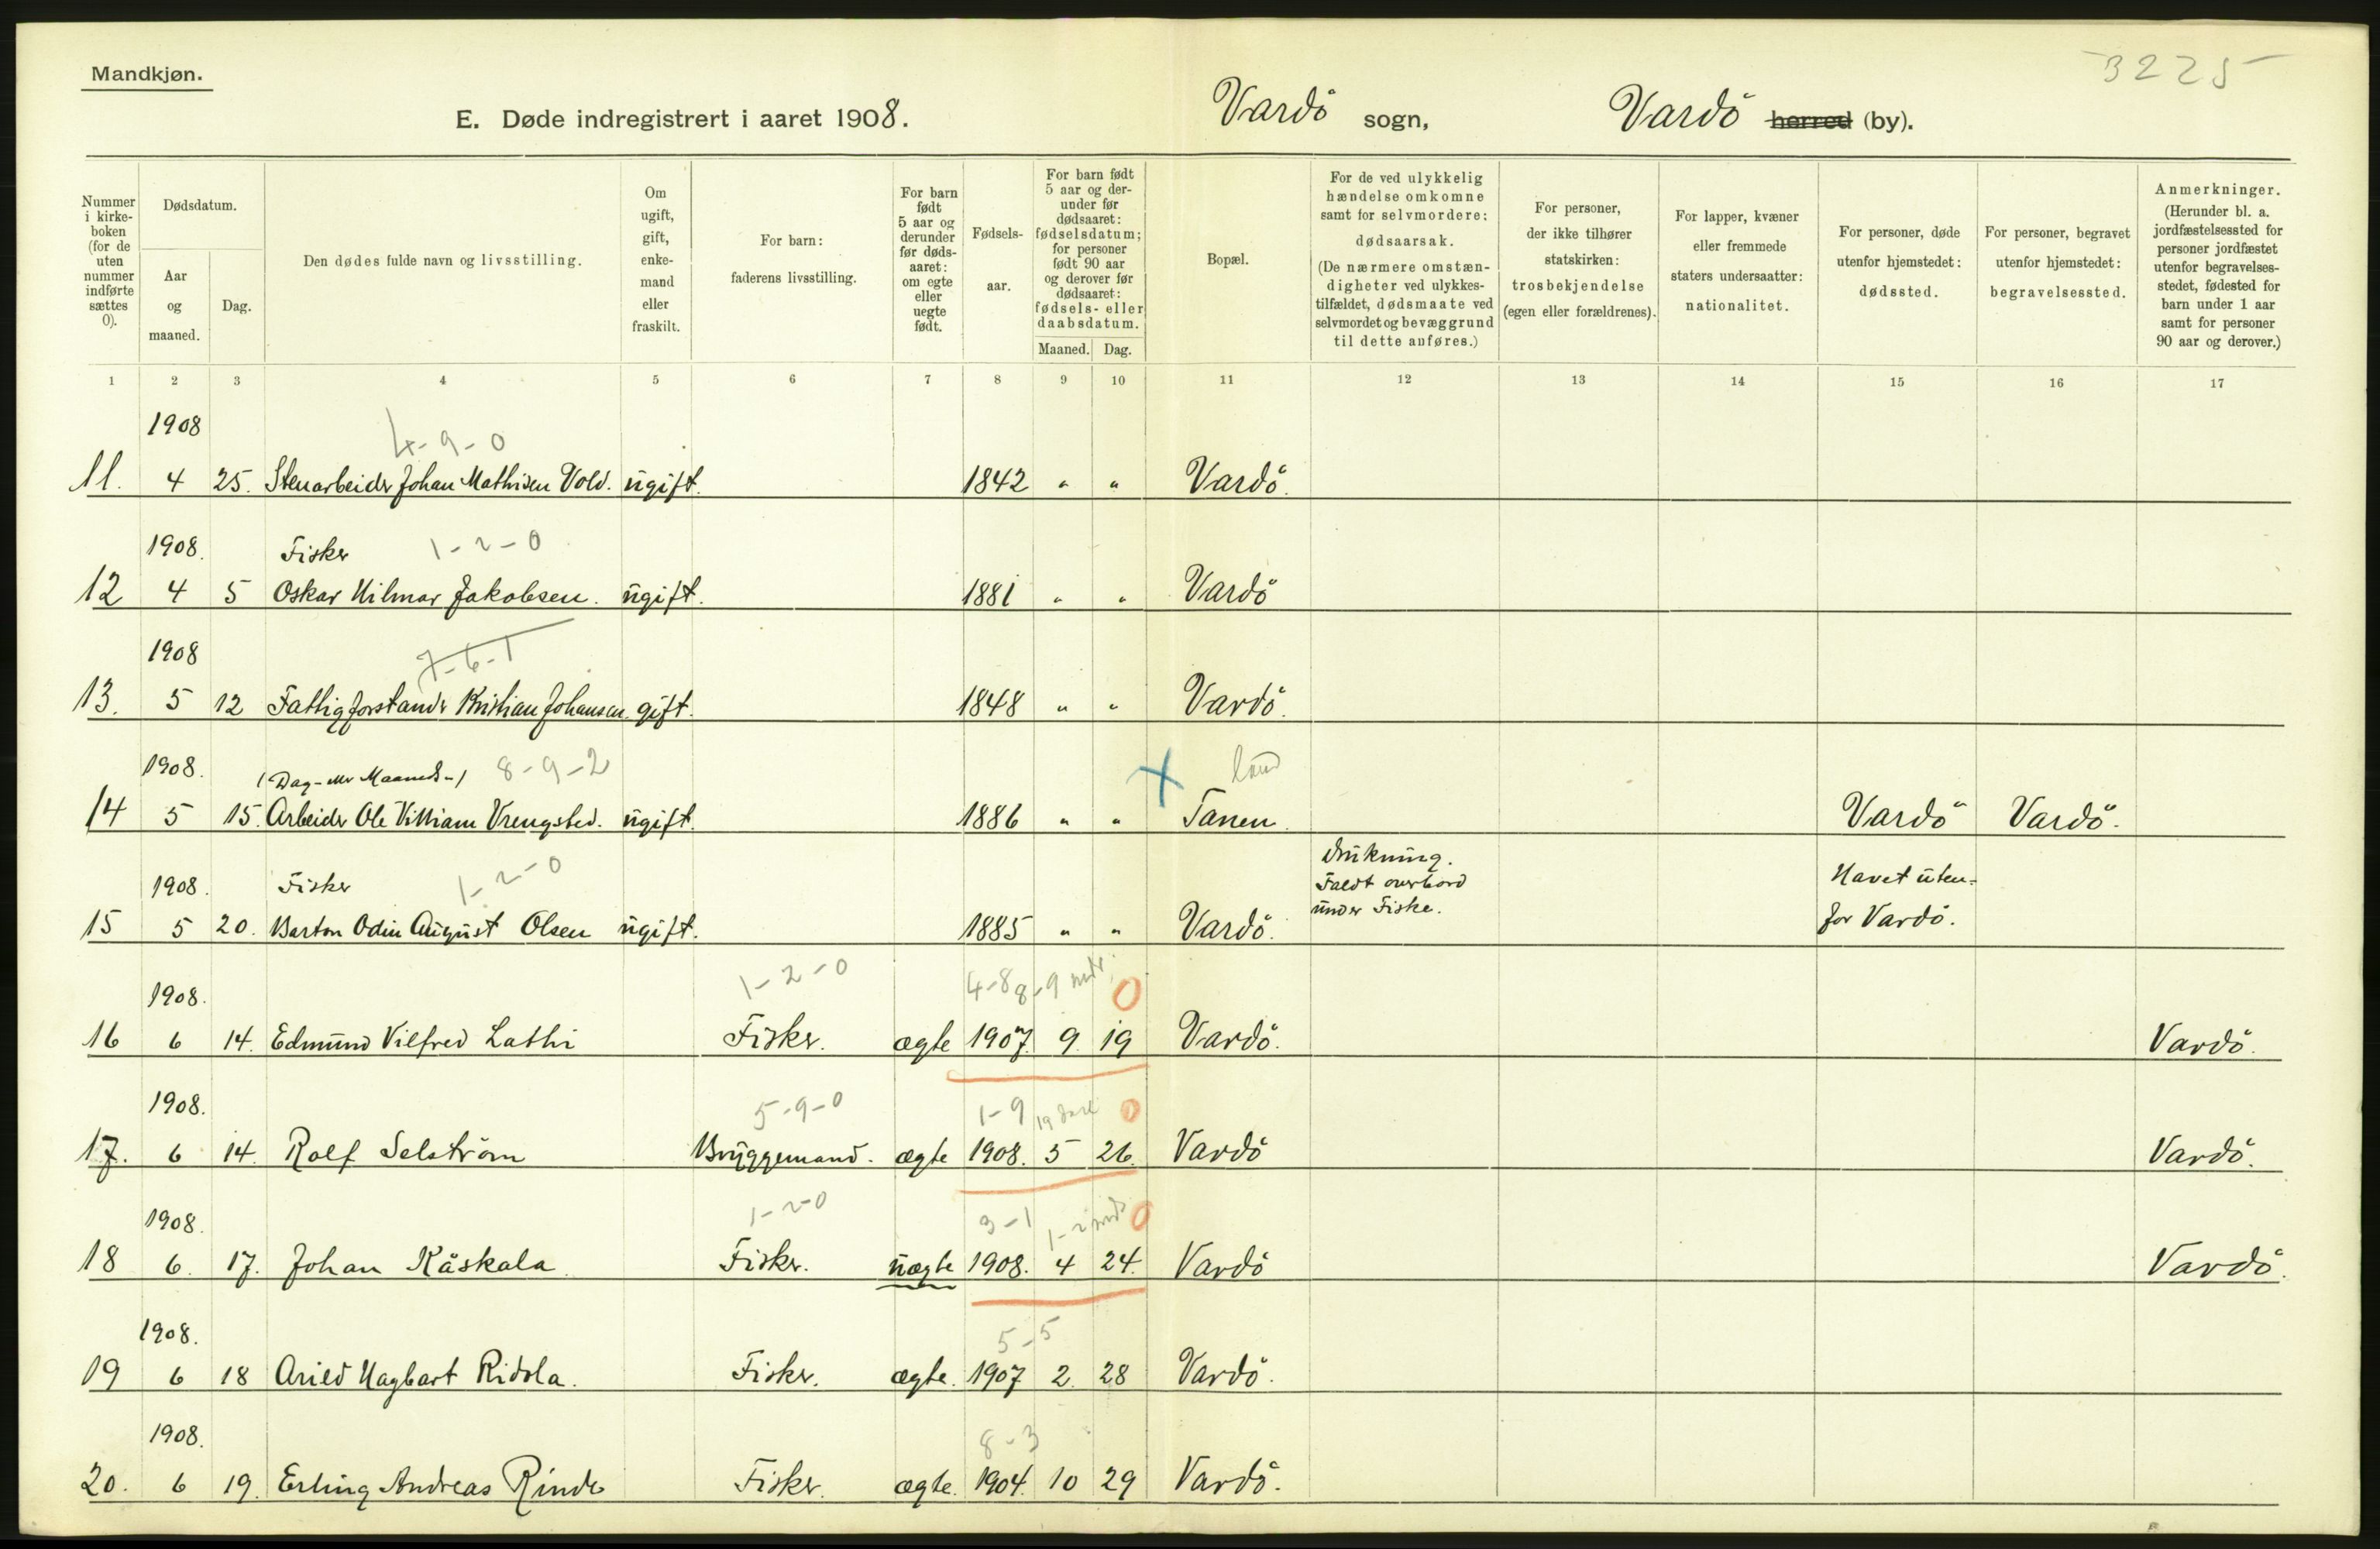 Mandkjøn.
3225
E. Døde indregistrert i aaret 1908.
Vardö sogn,
Vardö herred (by).
Nummer i kirke-boken (for de uten nummer indførte sættes 0).
Dødsdatum.
Aar og maaned.
Dag.
Den dødes fulde navn og livsstilling.
Om ugift, gift, enke-mand eller fraskilt.
For barn: faderens livsstilling.
For barn født 5 aar og derunder før døds-aaret: om egte eller uegte født.
Fødsels-aar.
For barn født 5 aar og der-under før dødsaaret: fødselsdatum; for personer født 90 aar og derover før dødsaaret: fødsels- eller daabsdatum.
Maaned. Dag.
Bopæl.
For de ved ulykkelig hændelse omkomne samt for selvmordere: dødsaarsak. (De nærmere omstæn-digheter ved ulykkes-tilfældet, dødsmaate ved selvmordet og bevæggrund til dette anføres.)
For personer, der ikke tilhører statskirken: trosbekjendelse (egen eller forældrenes).
For lapper, kvæner eller fremmede staters undersaatter: nationalitet.
For personer, døde utenfor hjemstedet: dødssted.
For personer, begravet utenfor hjemstedet: begravelsessted.
Anmerkninger. (Herunder bl. a. jordfæstelsessted for personer jordfæstet utenfor begravelses-stedet, fødested for barn under 1 aar samt for personer 90 aar og derover.)
1 2 3 4 5 6 7 8 9 10 11 12 13 14 15 16 17
1908 4-9-0
11. 4 25. Stenarbeider Johan Mathisen Vold. ugift. 1842 " " Vardö.
1908. Fisker 1-2-0
12 4 5 Oskar Hilmar Jakobsen. ugift. 1881 " " Vardö
1908 7-6-1
13. 5 12 Fattigforstander Kristian Johansen. gift. 1848 " " Vardö.
1908. (Dag- eller Maaneds-) 8-9-2 X land
14 5 15. Arbeider Ole Villiam Vrengsted. ugift. 1886 " " Tanen. Vardö Vardö.
1908. Fisker 1-2-0 Drukning. Faldt overbord under Fiske. Havet uten-
15 5 20. Barton Odin August Olsen ugift. 1885 " " Vardö. for Vardö.
1908. 1-2-0 4-8 8-9 mdr. 0
16 6 14. Edmund Vilfred Lathi Fisker. ægte 1907. 9. 19 Vardö. Vardö.
1908. 5-9-0 1-9 19 dage 0
17. 6 14. Rolf Selström Bryggemand. ægte 1908. 5 26. Vardö Vardö.
1908. 1-2-0 3-1 1-2 mdr 0
18 6. 17. Johan Kåskala Fisker. uægte 1908. 4 24. Vardö Vardö.
1908. 5-5
19 6 18 Arild Hagbart Ridola. Fisker. ægte. 1907 2. 28 Vardö.
1908. 8-3
20. 6 19. Erling Andreas Rinde Fisker. ægte. 1904. 10 29 Vardö.